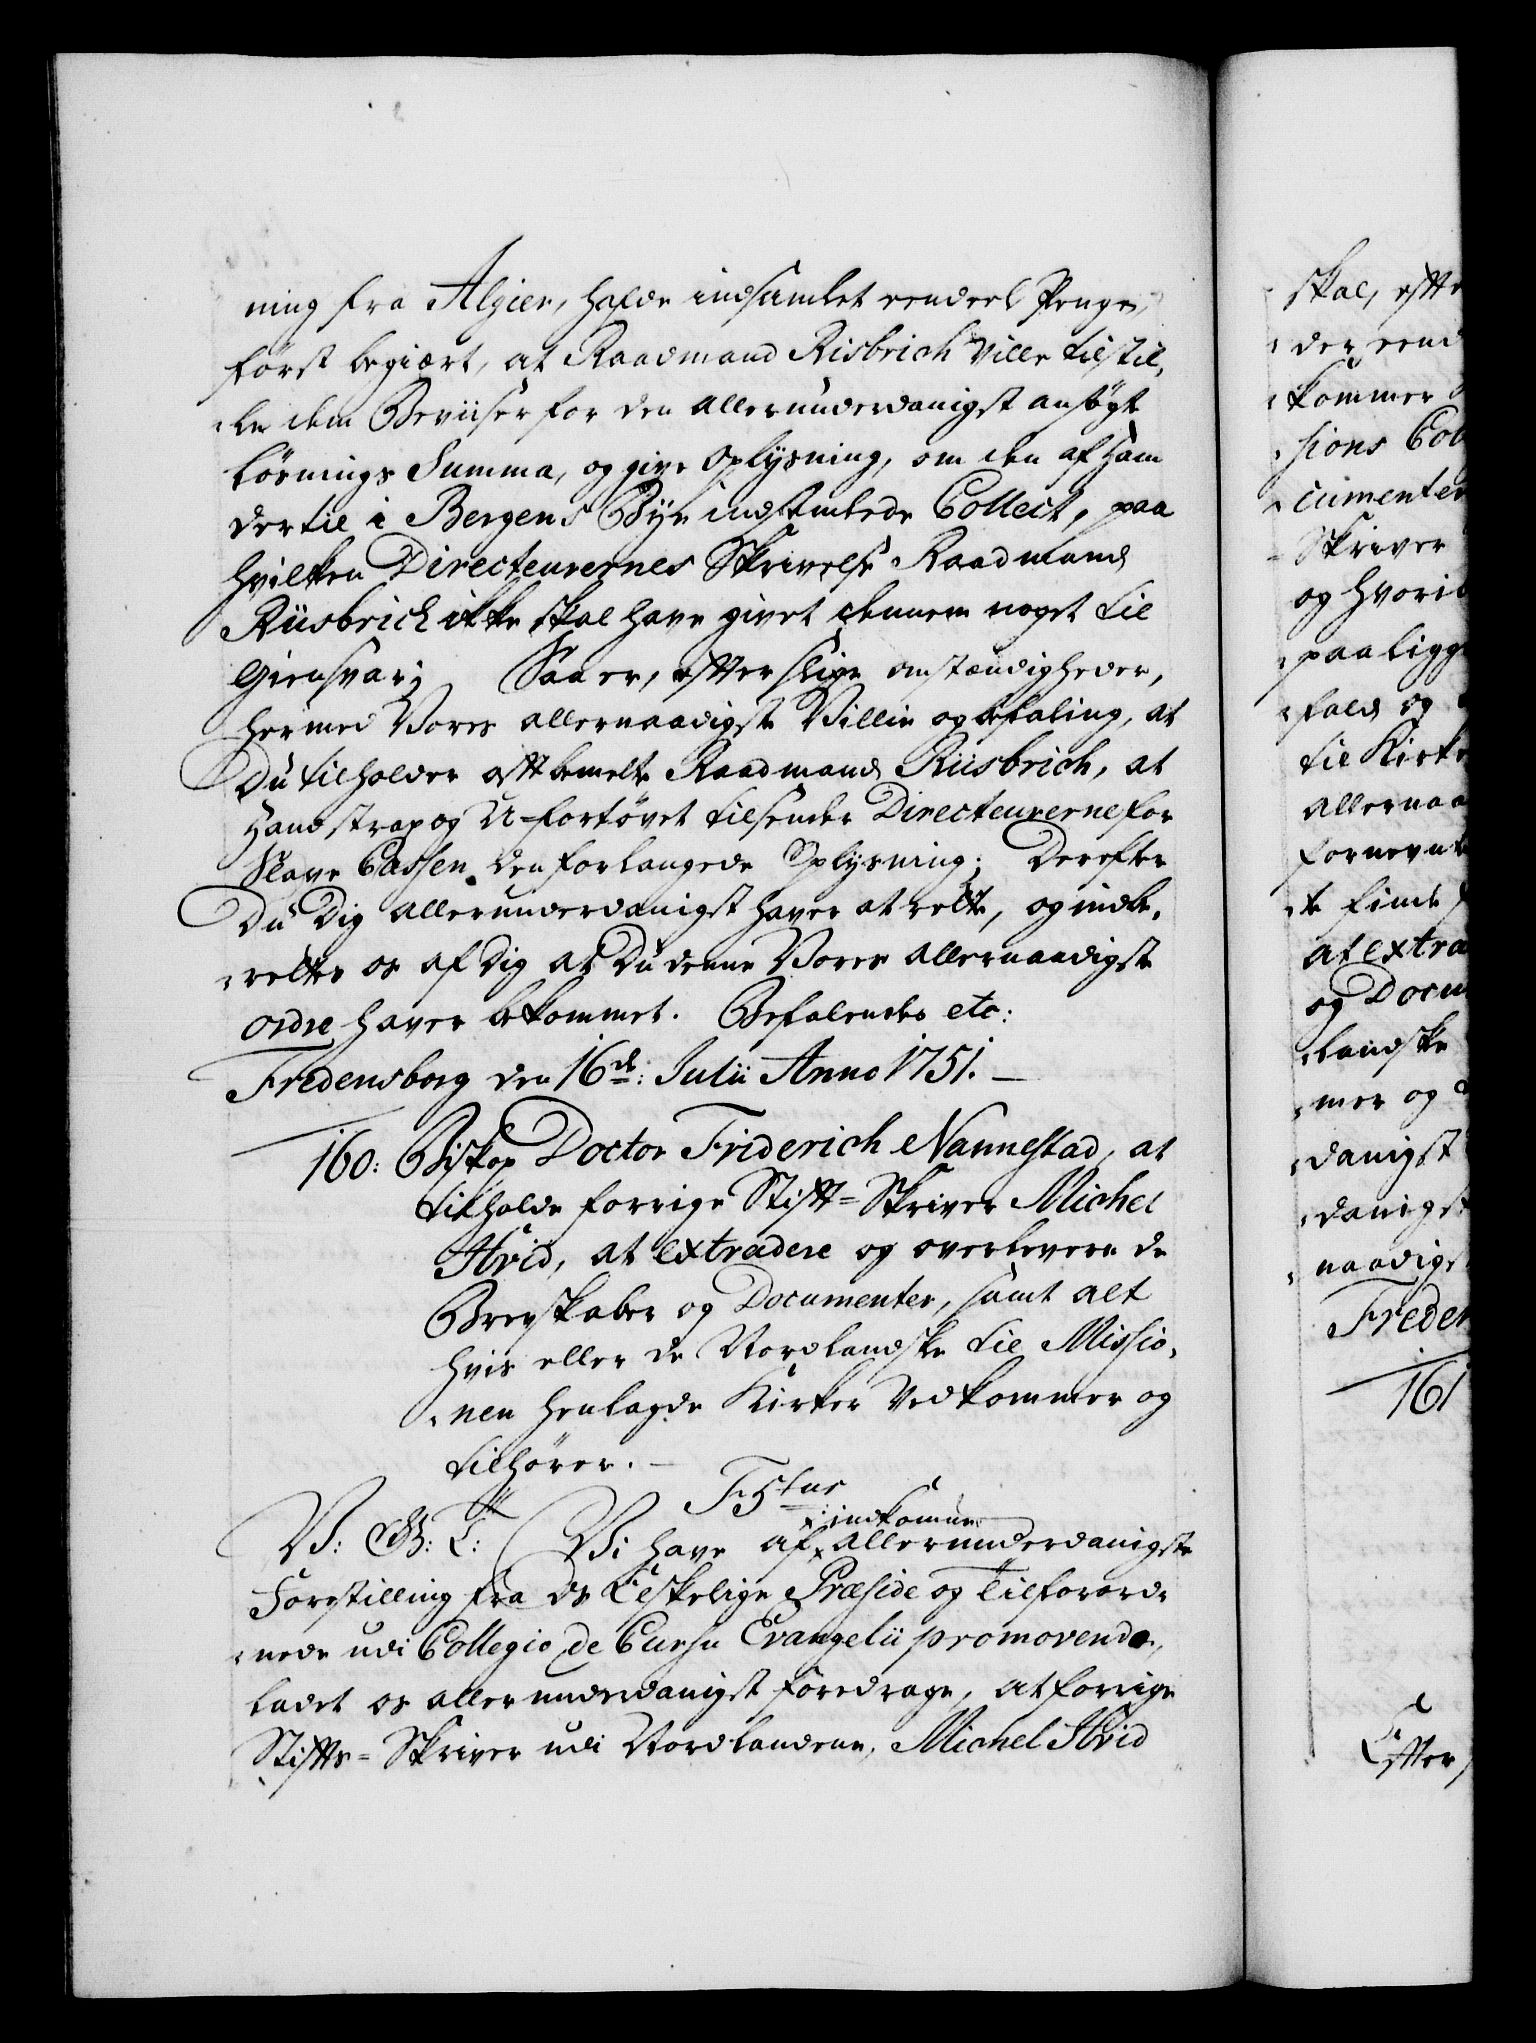 ning fra Algier, hafde indsamlet eendeel Penge,
först begiært, at Raadmand Risbrich ville tilstil,
„le dem Beviiser for den allerunderdanigst ansögte
lösnings Summa, og give Oplysning, om den af ham
dertil i Bergens Bye indsamlede Collect, paa
hvilken Directeurernes Skrivelse Raadmand
Riisbrich ikke skal have givet dennem noget til
Giensvar; Saa er, efter slige omstændigheder,
hermed Vores allernaadigste Villie og befaling, at
Du tilholder oftbemelte Raadmand Riisbrich, at
Hand strax og U-fortövet tilsender Directeurerne for
Slave Cassen den forlangede Oplysning; Derefter
Du Dig allerunderdanigst haver at rette, og indbe,
„rettes os af Dig at Du denne Vores allernaadigste
ordre haver bekommet. Befalendes etc:
Fredensborg den 16de: Julii Anno 1751. —
160: Biskop Doctor Friderich Nannestad, at
tilholde forrige Stift-Skriver Michel
Hvid, at extradere og overlevere de
Brevskaber og Documenter, samt alt
hvis eller de Nordlandske til Missio,
„nen henlagde Kirker vedkommer og
tilhører. —
F5tus
V: G: T: Vi have af allerunderdanigste
indkomne
Forestilling fra Os Elskelige Præside og Tilforord,
„nede udi Collegio de Cursu Evangelii promovendo,
ladet os allerunderdanigst foredrage, at forrige
Stifts-Skriver udi Nordlandene, Michel Hvid
skal, efte
der eend
kommer
sions Col
cumenter
Skriver
og hvori
paa ligge
fald og
til Kirke
allernaa
fornevnte
te finde
at extra
og Docu
„landske
„mer og
„danigst
„danigst
naadigs
Freden
161
Efter